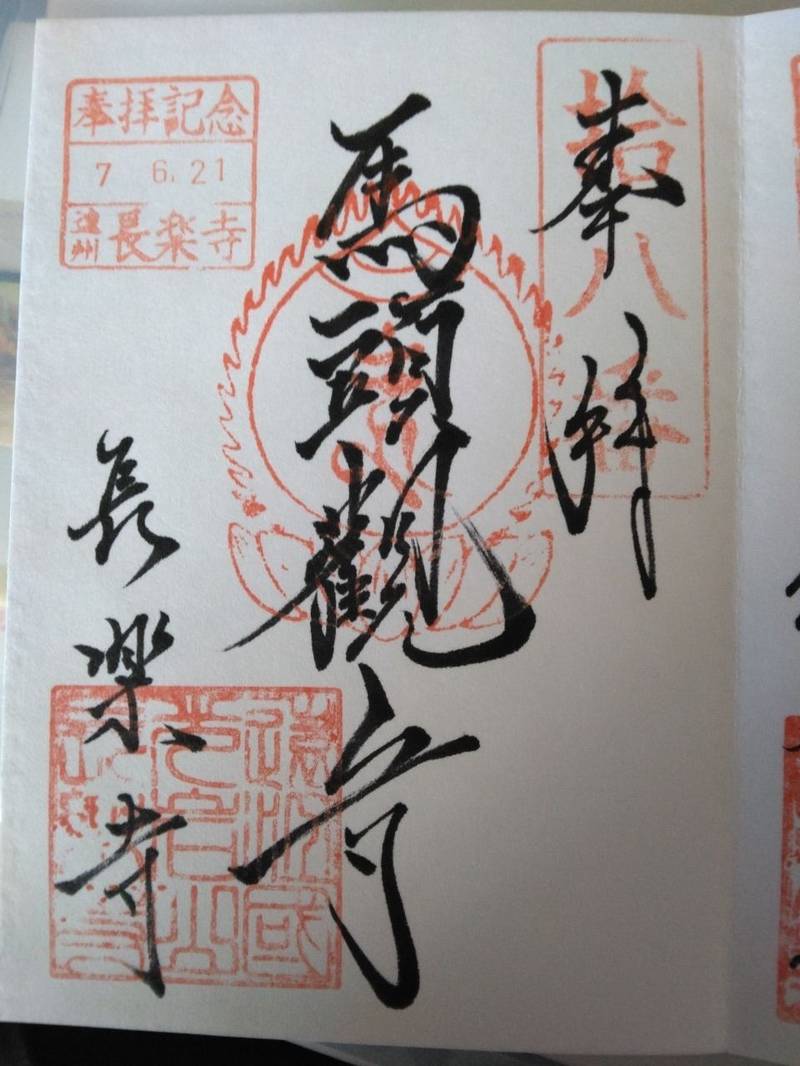 拾八番
奉拝
馬頭觀音
奉拝記念
7 6.21
遠州 長楽寺
長楽寺